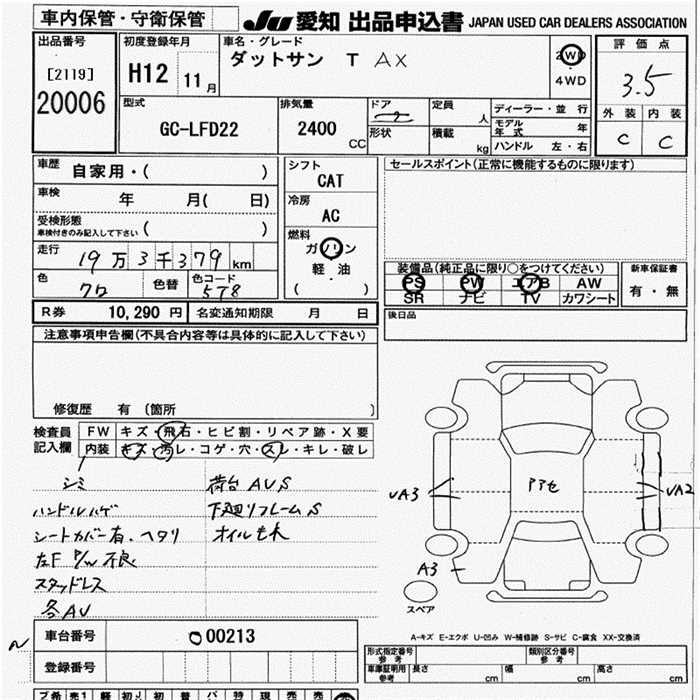 車内保管・守衛保管
JU 愛知 出品申込書 JAPAN USED CAR DEALERS ASSOCIATION
出品番号
[2119]
20006
初度登録年月
H12 11月
車名・グレード
ダットサン T AX
2WD
4WD
評価点
3.5
外装 内装
C C
型式
GC-LFD22
排気量
2400 CC
ドア
形状
定員 人
積載 kg
ディーラー・並行
モデル年式 年
ハンドル 左・右
車歴 自家用・( )
車検 年 月( 日)
受検形態
車検付きのみ記入して下さい ( )
走行 19万3千379km
色 クロ 色替 色コード 5T8
シフト
CAT
冷房
AC
燃料
ガソリン
軽・油
( )
セールスポイント(正常に機能するものに限ります)
装備品(純正品に限り○をつけてください)
PS PW エアB AW
SR ナビ TV カワシート
新車保証書
有・無
後日品
R券 10,290円 名変通知期限 月 日
注意事項申告欄(不具合内容等は具体的に記入して下さい)
修復歴 有 (箇所 )
検査員記入欄
FW キズ・飛石・ヒビ割・リペア跡・X要
内装 キズ・汚レ・コゲ・穴・スレ・キレ・破レ
シミ
ハンドルハゲ
シートカバー有、ヘタリ
左F P/W 不良
スタッドレス
各AU
荷台AUS
下廻リフレームS
オイルもれ
UA3
UA2
A3
スペア
A-キズ E-エクボ U-凹み W-補修跡 S-サビ C-腐食 XX-交換済
車台番号 000213
登録番号
形式指定番号
参考
類別区分番号
参考
車庫証明用
参考
長さ cm 幅 cm 高さ cm